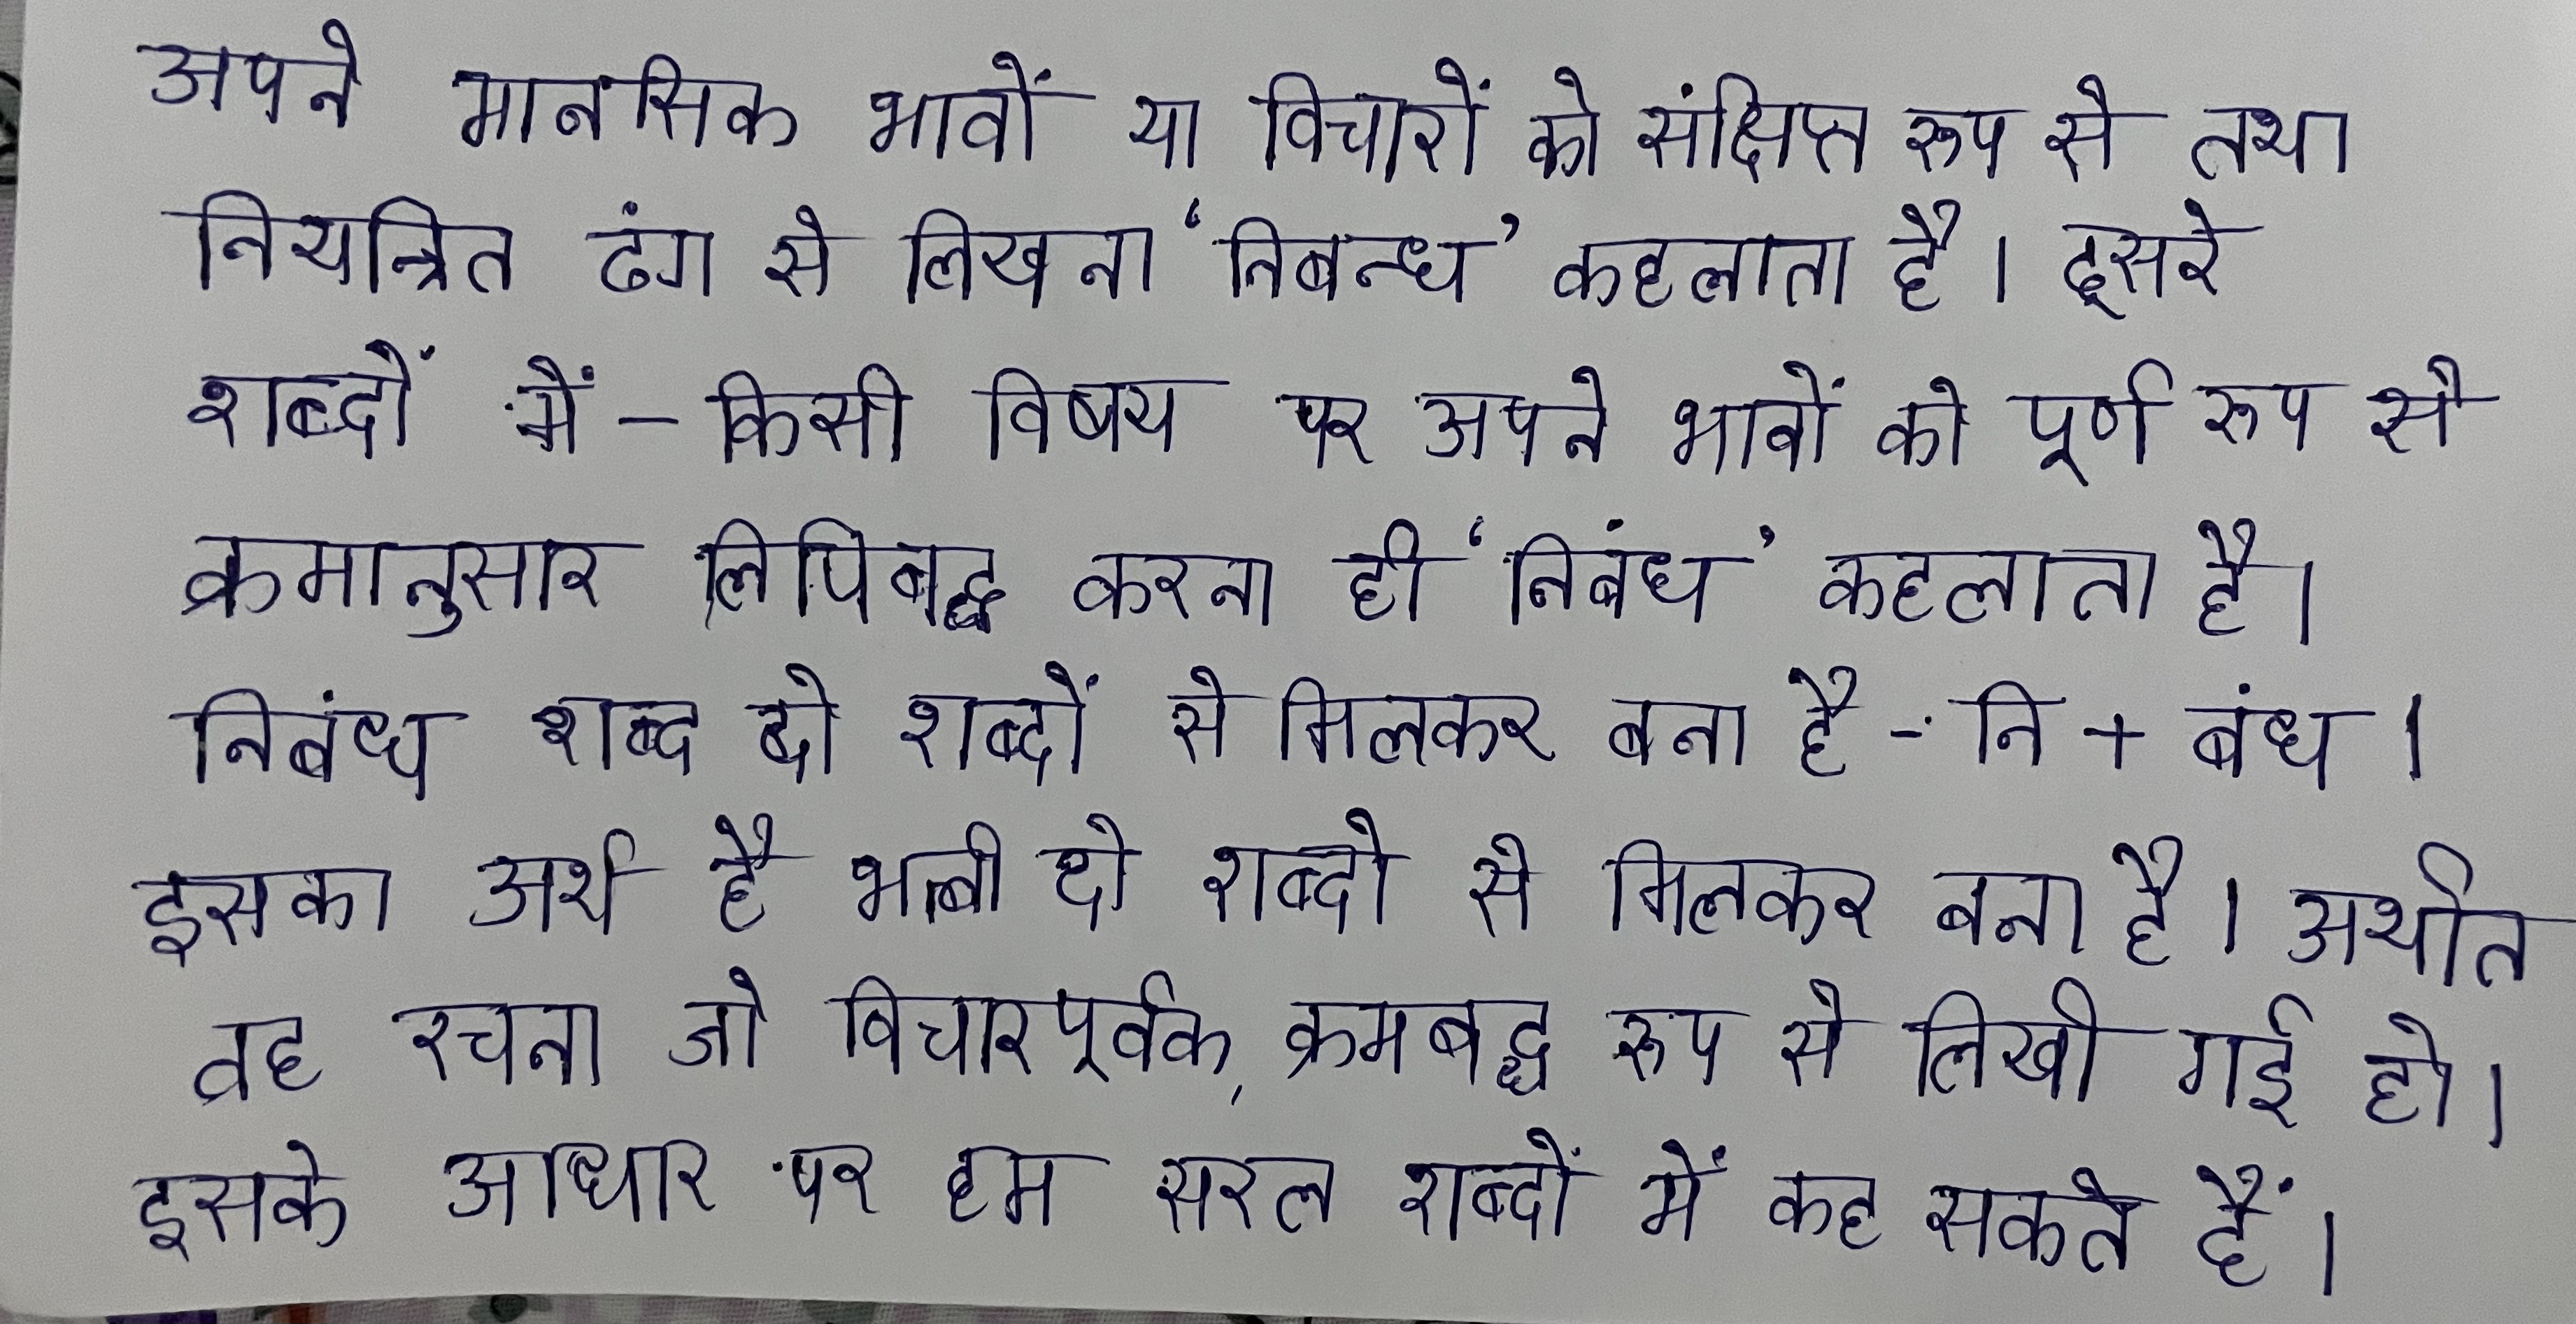 अपने मानसिक भावों या विचारों को संक्षिप्त रूप से तथा
नियन्त्रित ढंग से लिखना ‘निबन्ध’ कहलाता है। दूसरे
शब्दों में - किसी विषय पर अपने भावों को पूर्ण रूप से
क्रमानुसार लिपिबद्ध करना ही ‘निबंध’ कहलाता है।
निबंध शब्द दो शब्दों से मिलकर बना है - नि + बंध।
इसका अर्थ है दो शब्दो से मिलकर बना है। अर्थात
वह रचना जो विचारपूर्वक, क्रमबद्ध रूप से लिखी गई हो।
इसके आधार पर हम सरल शब्दों में कह सकते हैं।